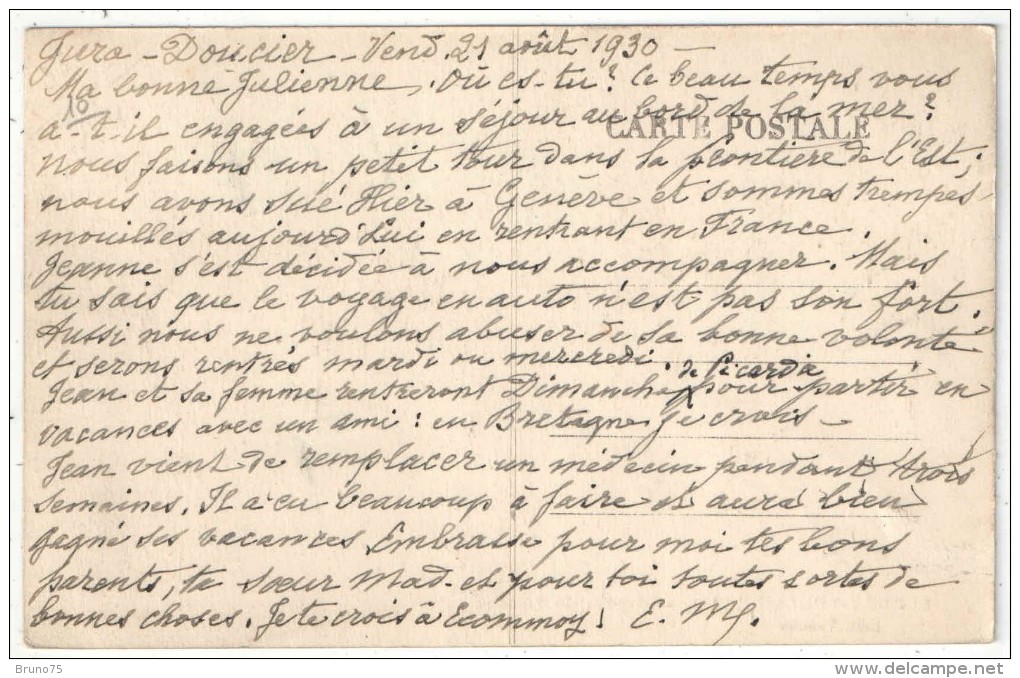 Jura - Doucier - Vend. 21 août 1930 -
Ma bonne Julienne, Où es-tu? Ce beau temps vous
a-t-il engagées à un séjour au bord de la mer?
CARTE POSTALE
Nous faisons un petit tour dans la frontière de l'Est;
nous avons sué Hier à Genève et sommes trempés
mouillés aujourd'hui en rentrant en France.
Jeanne s'est décidée à nous accompagner. Mais
tu sais que le voyage en auto n'est pas son fort.
Aussi nous ne voulons abuser de sa bonne volonté
et serons rentrés mardi ou mercredi.
de Picardie
Jean et sa femme rentreront Dimanche pour partir en
vacances avec un ami: en Bretagne je crois -
Jean vient de remplacer un médecin pendant trois
semaines. Il a eu beaucoup à faire et aura bien
gagné ses vacances. Embrasse pour moi tes bons
parents, ta sœur Mad. et pour toi toutes sortes de
bonnes choses. Je te crois à Ecommoy! E. M.
Bruno75
www.delcampe.net